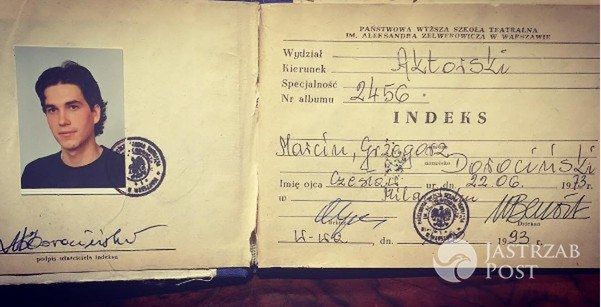 PAŃSTWOWA WYŻSZA SZKOŁA TEATRALNA
IM. ALEKSANDRA ZELWEROWICZA W WARSZAWIE
Wydział
Kierunek Aktorski
Specjalność
Nr albumu 2456.
INDEKS
Marcin, Grzegorz Dorociński
nazwisko
Imię ojca Czesław ur. dn. 22.06. 1973.
w Milanów
Dziekan
W-wa dn. 1993 r.
podpis właściciela indeksu
JASTRZĄB
POST